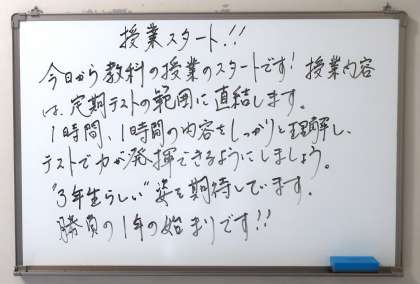 授業スタート!!
今日から教科の授業のスタートです! 授業内容
は、定期テストの範囲に直結します。
1時間、1時間の内容をしっかりと理解し、
テストで力が発揮できるようにしましょう。
"3年生らしい"姿を期待しています。
勝負の1年の始まりです!!